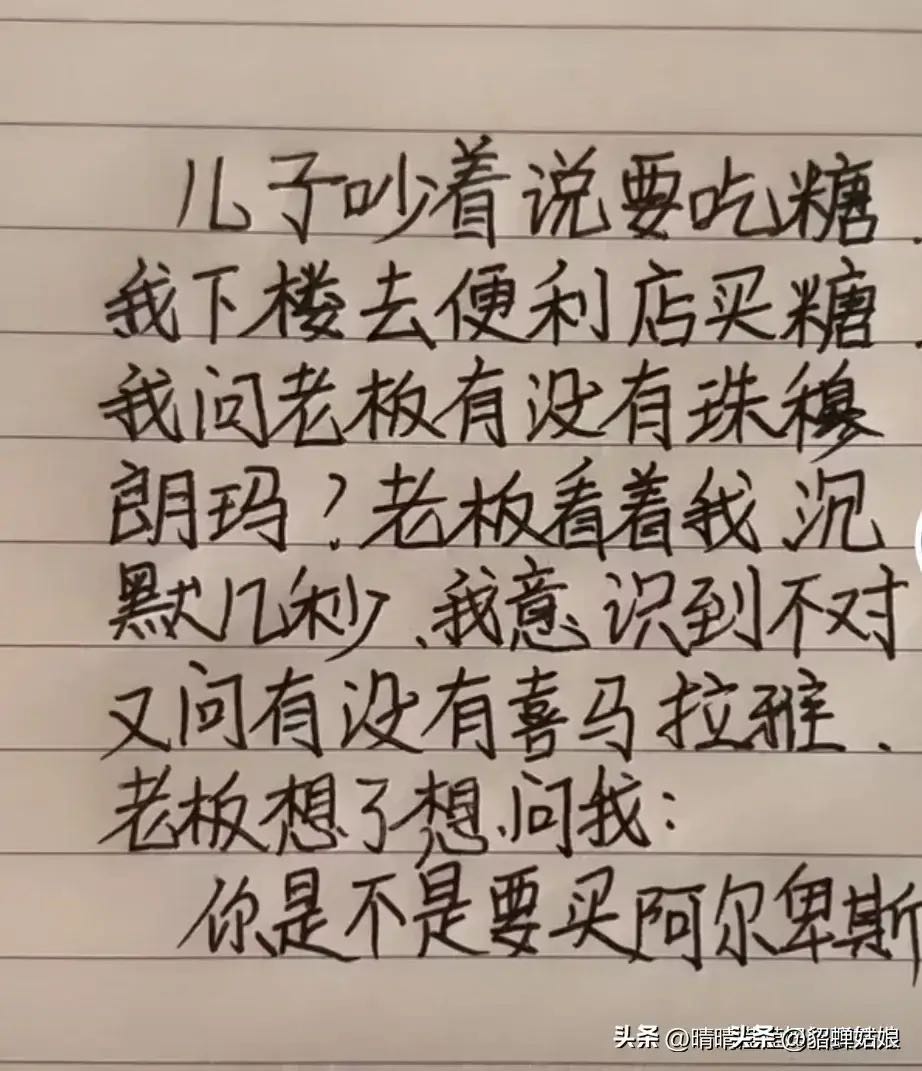 儿子吵着说要吃糖、
我下楼去便利店买糖、
我问老板有没有珠穆
朗玛？老板看着我沉
默几秒、我意识到不对
又问有没有喜马拉雅、
老板想了想、问我：
你是不是要买阿尔卑斯
头条 @晴晴
头条 @貂蝉姑娘